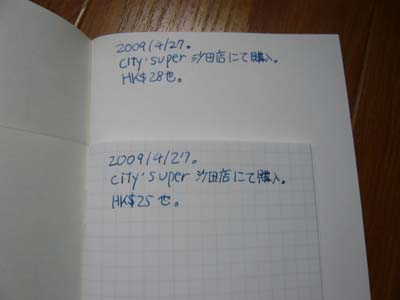 2009/4/27。
city'super 沙田店にて購入。
HK$28也。
2009/4/27。
city'super 沙田店にて購入。
HK$25也。